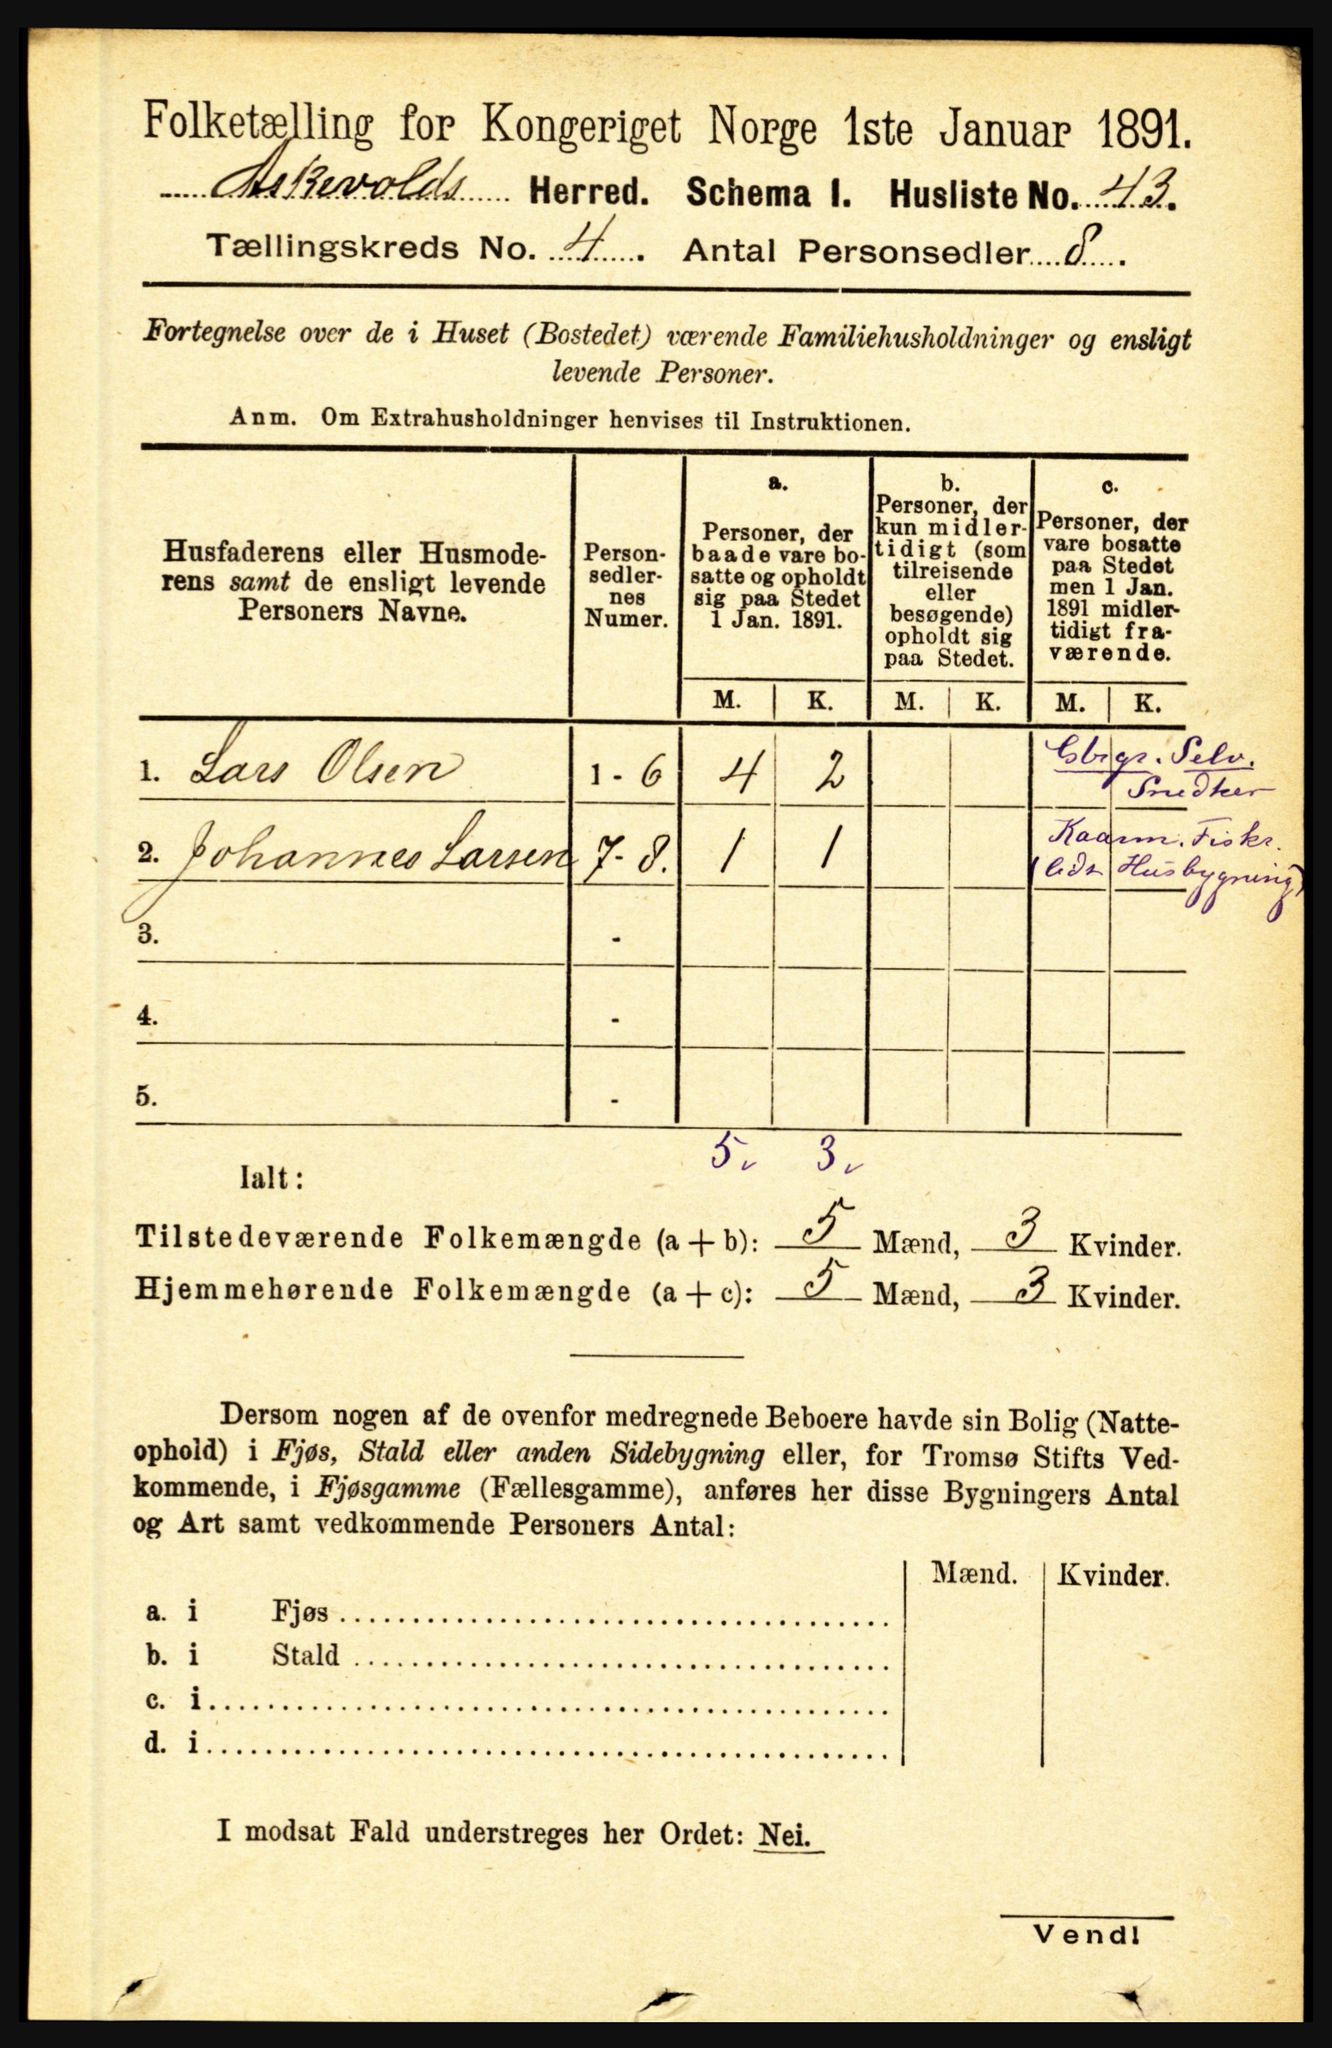 Folketælling for Kongeriget Norge 1ste Januar 1891.
Askevolds Herred. Schema I. Husliste No. 43.
Tællingskreds No. 4. Antal Personsedler 8.
Fortegnelse over de i Huset (Bostedet) værende Familiehusholdninger og ensligt
levende Personer.
Anm. Om Extrahusholdninger henvises til Instruktionen.
Husfaderens eller Husmode-
rens samt de ensligt levende
Personers Navne.
Person-
sedler-
nes
Numer.
a.
Personer, der
baade vare bo-
satte og opholdt
sig paa Stedet
1 Jan. 1891.
b.
Personer, der
kun midler-
tidigt (som
tilreisende
eller
besøgende)
opholdt sig
paa Stedet.
c.
Personer, der
vare bosatte
paa Stedet
men 1 Jan.
1891 midler-
tidigt fra-
værende.
M. K. M. K. M. K.
1. Lars Olsen 1 - 6 4 2 Gbrgr. Selv.
Snedker
2. Johannes Larsen 7 - 8. 1 1 Kaarm. Fiskr.
Husbygning)
3. -
4. -
5. -
5. 3.
Ialt:
Tilstedeværende Folkemængde (a + b): 5 Mænd, 3 Kvinder.
Hjemmehørende Folkemængde (a + c): 5 Mænd, 3 Kvinder.
Dersom nogen af de ovenfor medregnede Beboere havde sin Bolig (Natte-
ophold) i Fjøs, Stald eller anden Sidebygning eller, for Tromsø Stifts Ved-
kommende, i Fjøsgamme (Fællesgamme), anføres her disse Bygningers Antal
og Art samt vedkommende Personers Antal:
Mænd. Kvinder.
a. i Fjøs
b. i Stald
c. i
d. i
I modsat Fald understreges her Ordet: Nei.
Vend!